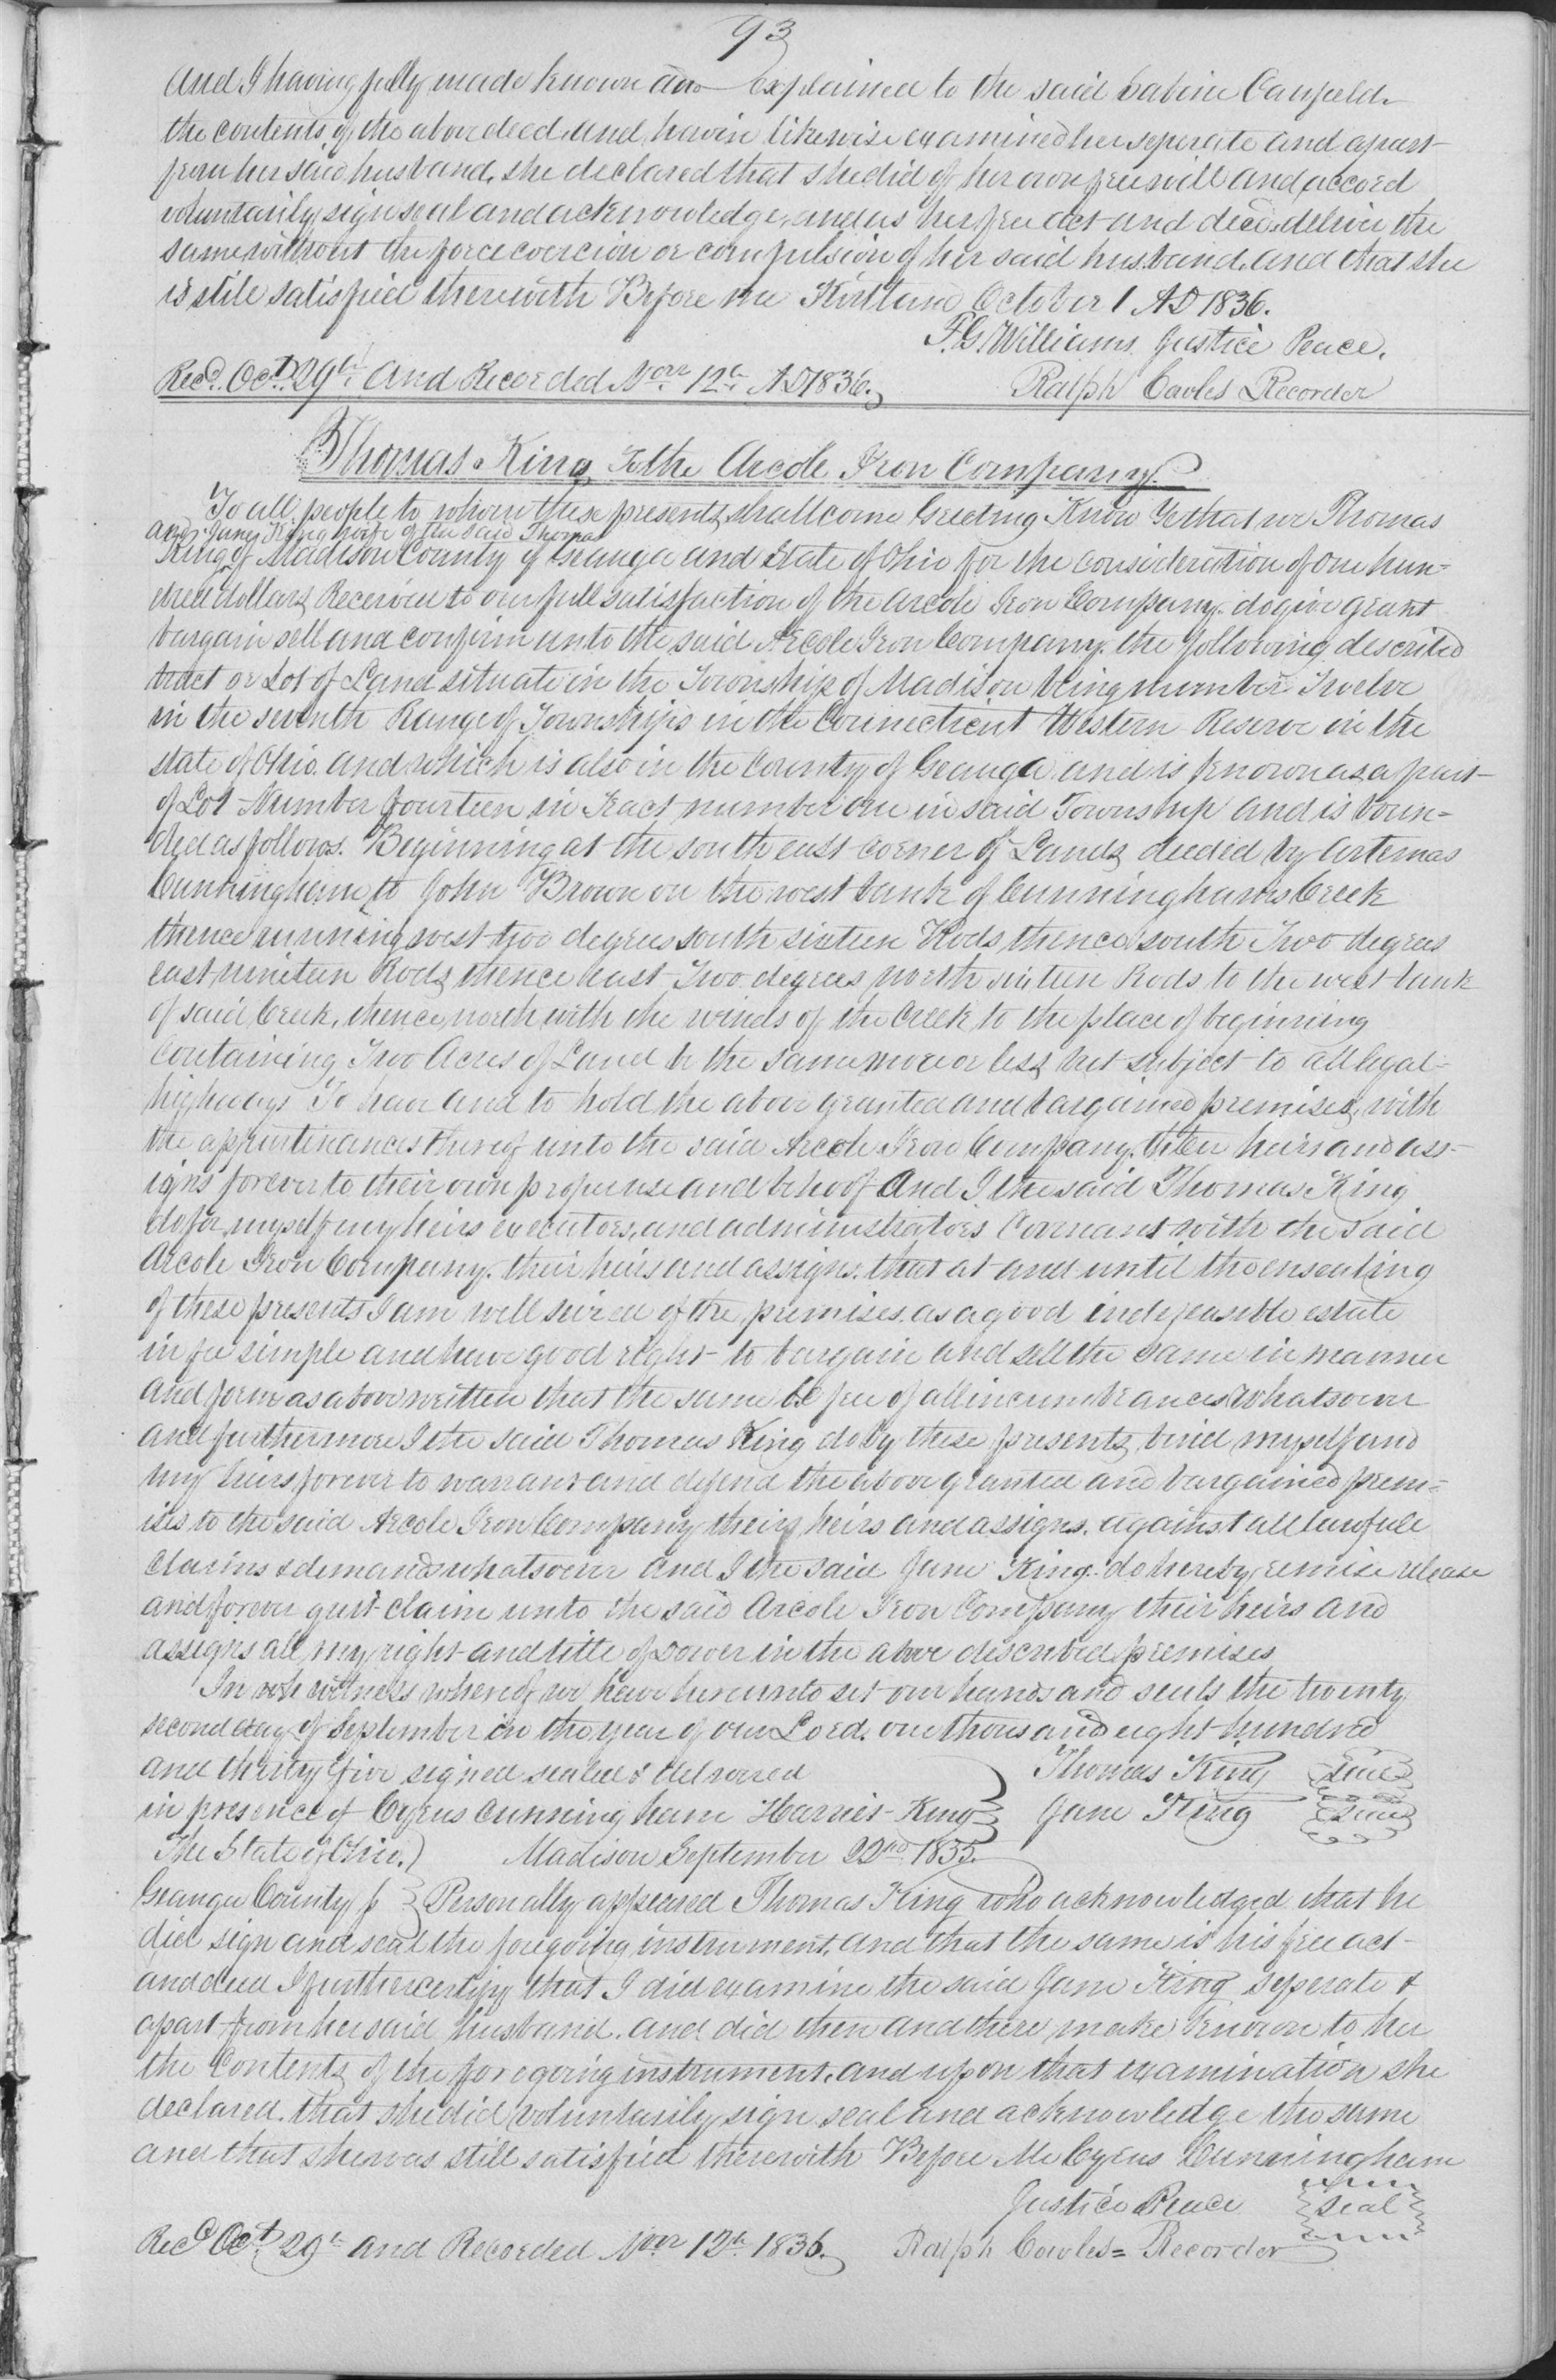 93
And I having fully made known and explained to the said Sabine Canfield
the contents of the above deed and havin likewise examined her seperate and apart
from her said husband, she declared that she did of her own free will and accord
voluntarily sign seal and acknowledge, and as her free act and deed deliver the
same without the force coercion or compulsion of her said husband. and that she
is stile satisfied therewith Before me Kirtland October 1 AD 1836.
F. G. Williams Justice Peace.
Recd. Oct. 29th. And Recorded Novr 12th. AD 1836. Ralph Cowles Recorder
Thomas King To the Arcole Iron Company
To all people to whom these presents shall come Greeting Know Ye that we Thomas
and Jane King wife of the said Thomas
King of Madison County of Geauga and State of Ohio for the consideration of one hun=
dred dollars Received to our full satisfaction of the Arcole Iron Company. do give grant
bargain sell and confirm unto the said Arcole Iron Company. the following described
tract or Lot of Land situate in the Township of Madison being number Twelve
in the seventh Range of Townships in the Connecticut Western Reserve in the
state of Ohio and which is also in the County of Geauga and is known as a part
of Lot Number fourteen in Tract number one in said Township and is boun=
ded as follows. Beginning at the south east corner of Lands deeded by Artemas
Cunningham to John Brown on the west bank of Cunninghams Creek
thence running west two degrees south sixteen Rods thence south Two degrees
east nineteen Rods thence east Two degrees north sixteen Rods to the west bank
of said Creek, thence north with the winds of the Creek to the place of beginning
Containing Two Acres of Land be the same more or less but subject to all legal
highways To have and to hold the above granted and bargained premises, with
the appurtinances thereof unto the said Arcole Iron Company. their heirs and ass-
igns forever to their own proper use and behoof And I the said Thomas King
do for myself my heirs executors, and administrators Covenant with the said
Arcole Iron Company. their heirs and assigns. that at and until the ensealing
of these presents I am well seized of the premises. as a good indefeasible estate
in fee simple and have good right to bargain and sell the same in manner
and form as above written that the same be free of all incumbrances whatsoever
and furthermore I the said Thomas King do by these presents bind myself and
my heirs forever to warrant and defend the above granted and bargained prem=
ises to the said Arcole Iron Company theirs heirs and assigns. against all lawfull
claims & demands whatsoever and I the said Jane King. do hereby remise release
and forever quit claim unto the said Arcole Iron Company their heirs and
assigns all my right and title of dower in the above described premises
In witness whereof we have hereunto set our hands and seals the twenty
second day of September in the year of our Lord. one thousand eight hundred
and thirty five signed sealed & delivered Thomas King seal
in presence of Cyrus Cunningham Harriet King Jane King seal
The State of Ohio.) Madison September 22nd 1835.
Geauga County } Personally appeared Thomas King who acknowledged that he
did sign and seal the foregoing instrument, and that the same is his free act
and deed I further certify that I did examine the said Jane King seperate &
apart from her said husband. and did then and there make known to her
the Contents of the foregoing instrument. and upon that examination she
declared. that she did voluntarily sign seal and acknowledge the same
and that she was still satisfied therewith Before Me Cyrus Cunningham
Justice Peace seal
Recd Oct 29th and Recorded Novr 12th 1836. Ralph Cowles= Recorder